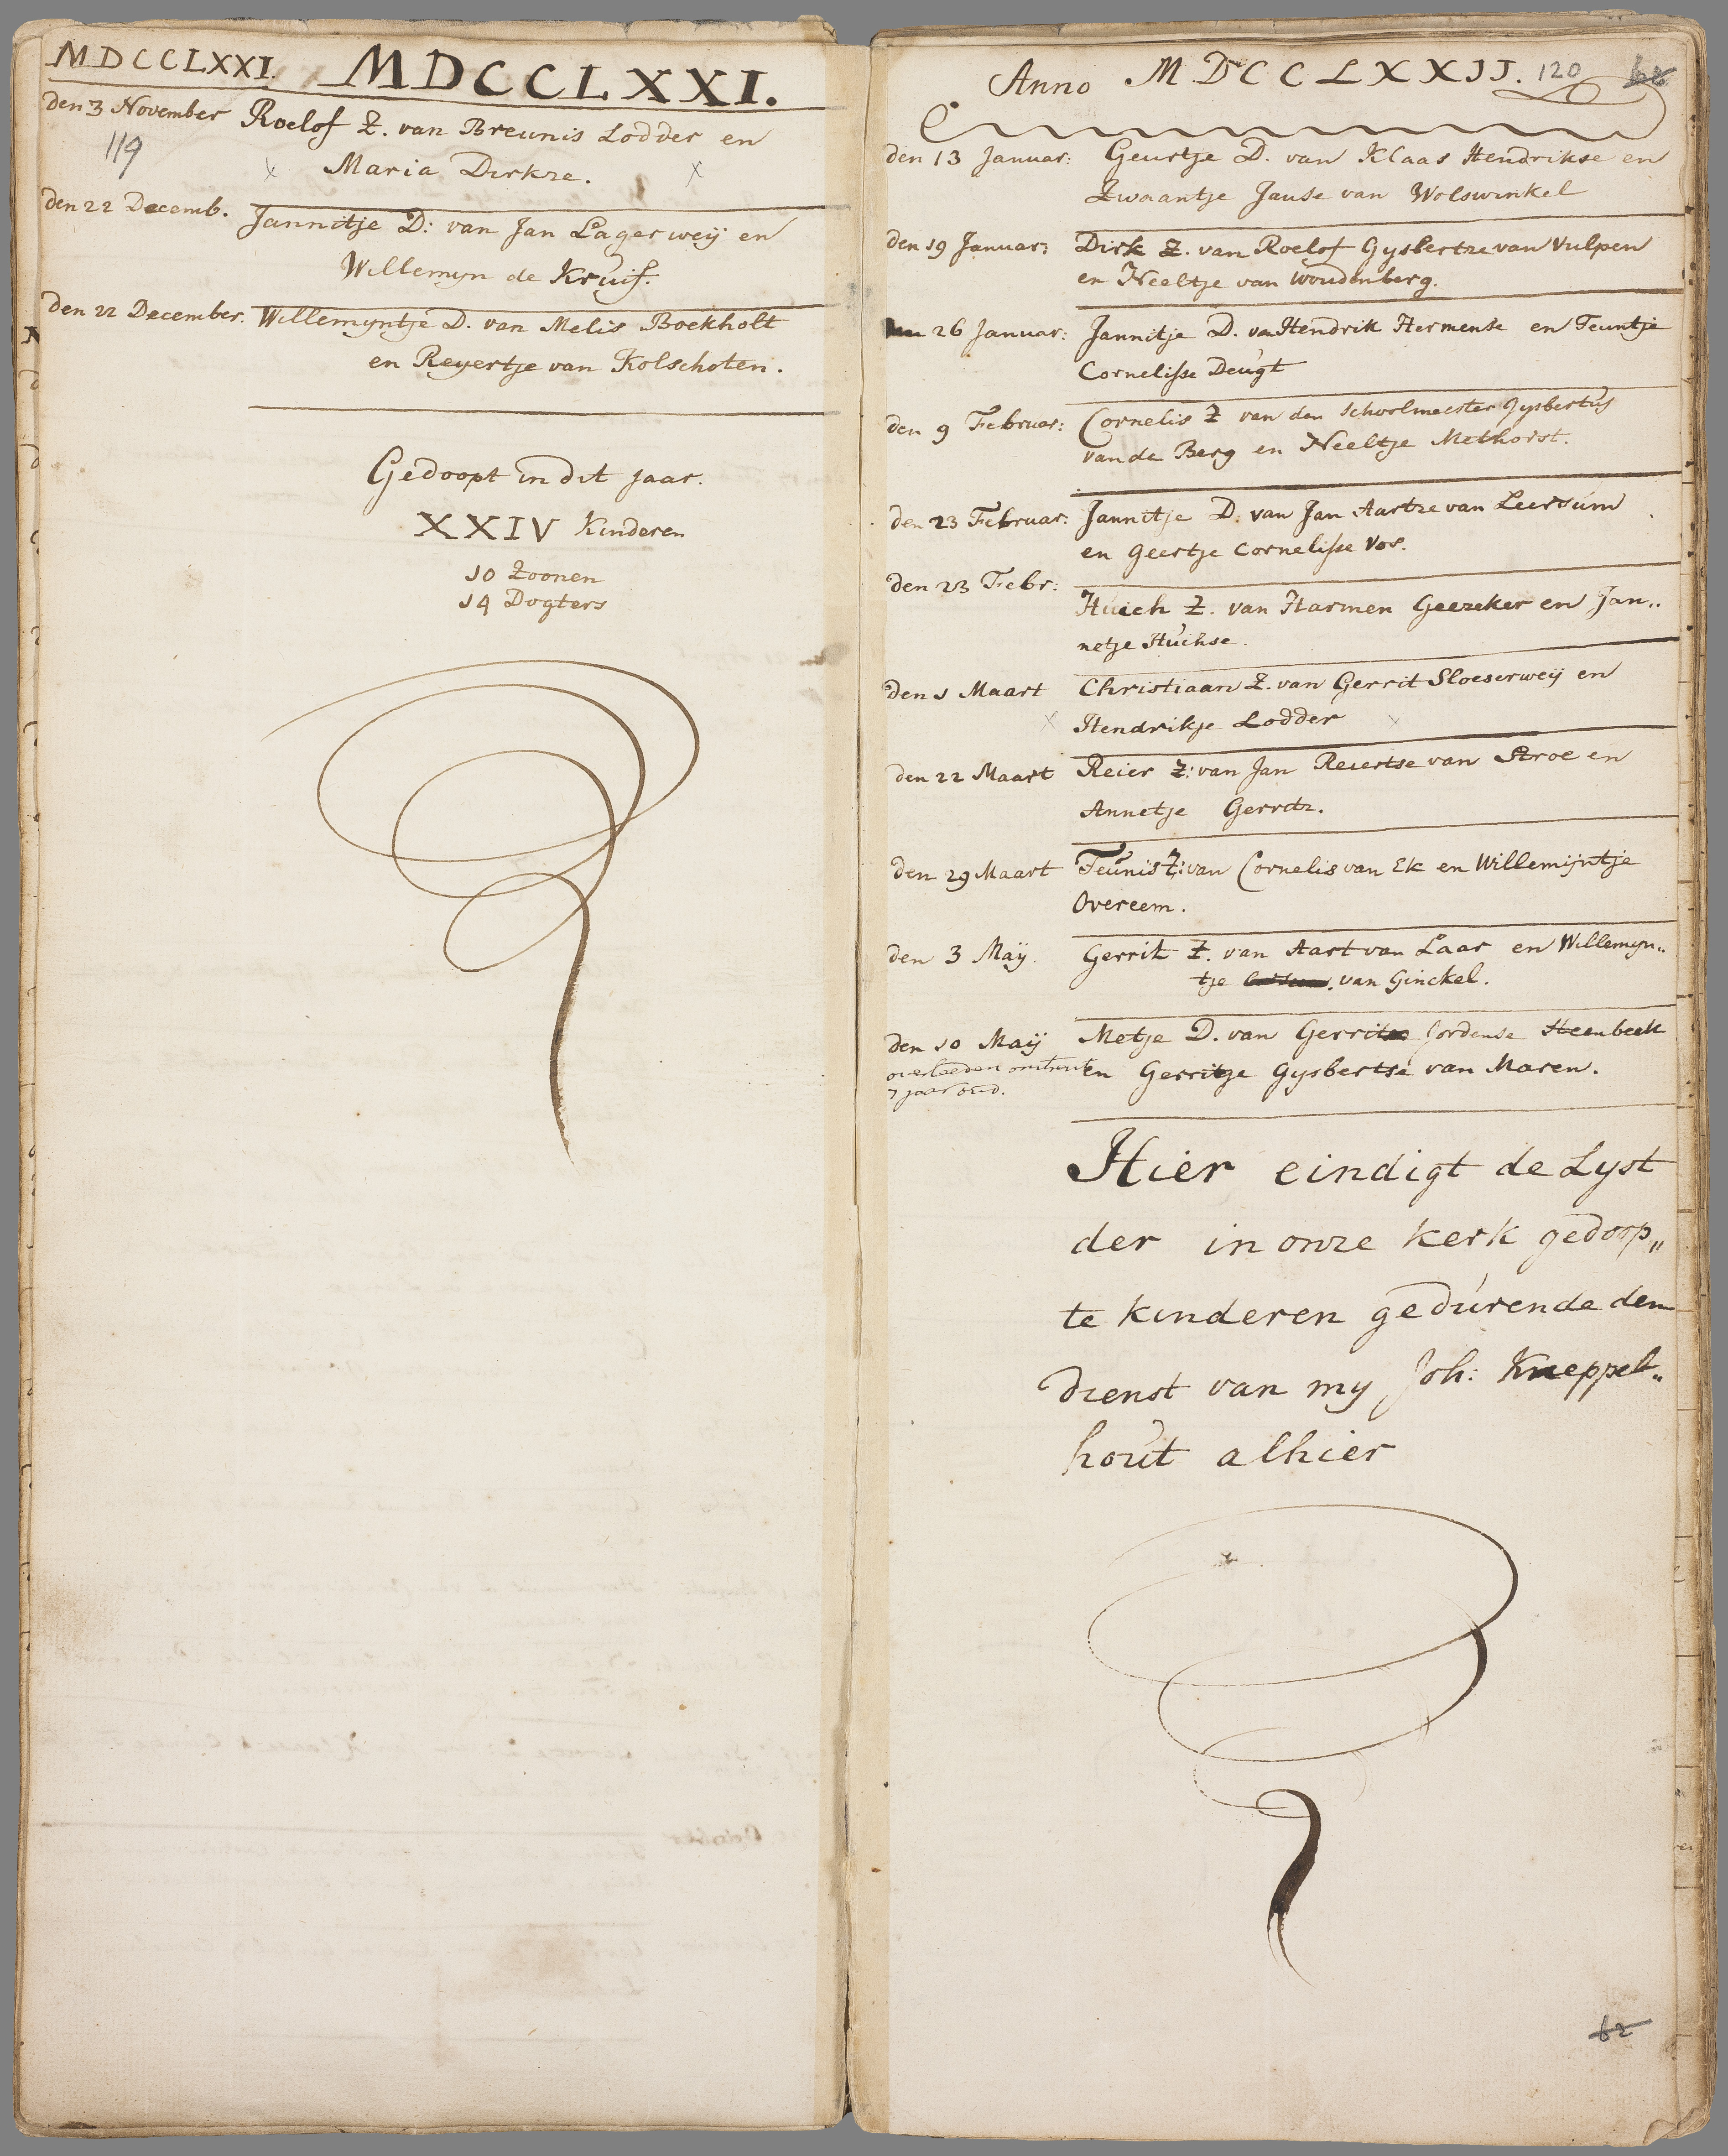 MDCCLXXI. MDCCLXXI.
den 3 November Roelof Z. van Breunis Lodder en
119
x Maria Dirkze. x
den 22 Decemb. Jannitje D: van Jan Lagerweÿ en
Willemyn de Kruif.
den 22 December. Willemyntje D. van Melis Boekholt
en Reyertje van Kolschoten.
Gedoopt in dit jaar.
XXIV Kinderen
10 Zoonen
14 Dogters
Anno MDCCLXXII. 120
den 13 Januar: Geurtje D. van Klaas Hendrikse en
Zwaantje Janse van Wolswinkel
den 19 Januar: Dirk Z. van Roelof Gysbertze van Vulpen
en Neeltje van Woudenberg.
den 26 Januar: Jannitje D. va Hendrik Hermense en Teuntje
Cornelisse Deugt
den 9 Februar: Cornelis Z van den Schoolmeester Gysbertus
van de Berg en Neeltje Methorst.
den 23 Februar: Jannitje D: van Jan Aartze van Leersum
en Geertje Cornelisse Vos.
den 23 Febr:
Huich Z. van Harmen Geezeker en Jan„
netje Huichse.
den 1 Maart Christiaan Z. van Gerrit Sloeserweÿ en
x Hendrikje Lodder x
den 22 Maart Reier Z: van Jan Reiertse van Stroe en
Annetje Gerritz.
den 29 Maart Teunis Z: van Cornelis van Ek en Willemijntje
Overeem.
den 3 Maÿ. Gerrit Z. van Aart van Laar en Willemyn„
tje van Ginckel.
den 10 Maÿ Metje D. van Gerrit Jordense Steenbeek
overleeden omtrent en Gerritje Gysbertse van Maren.
7 jaar oud.
Hier eindigt de Lyst
der in onze kerk gedoop„
te kinderen gedurende den
dienst van my Joh: Kneppel„
hout alhier
62